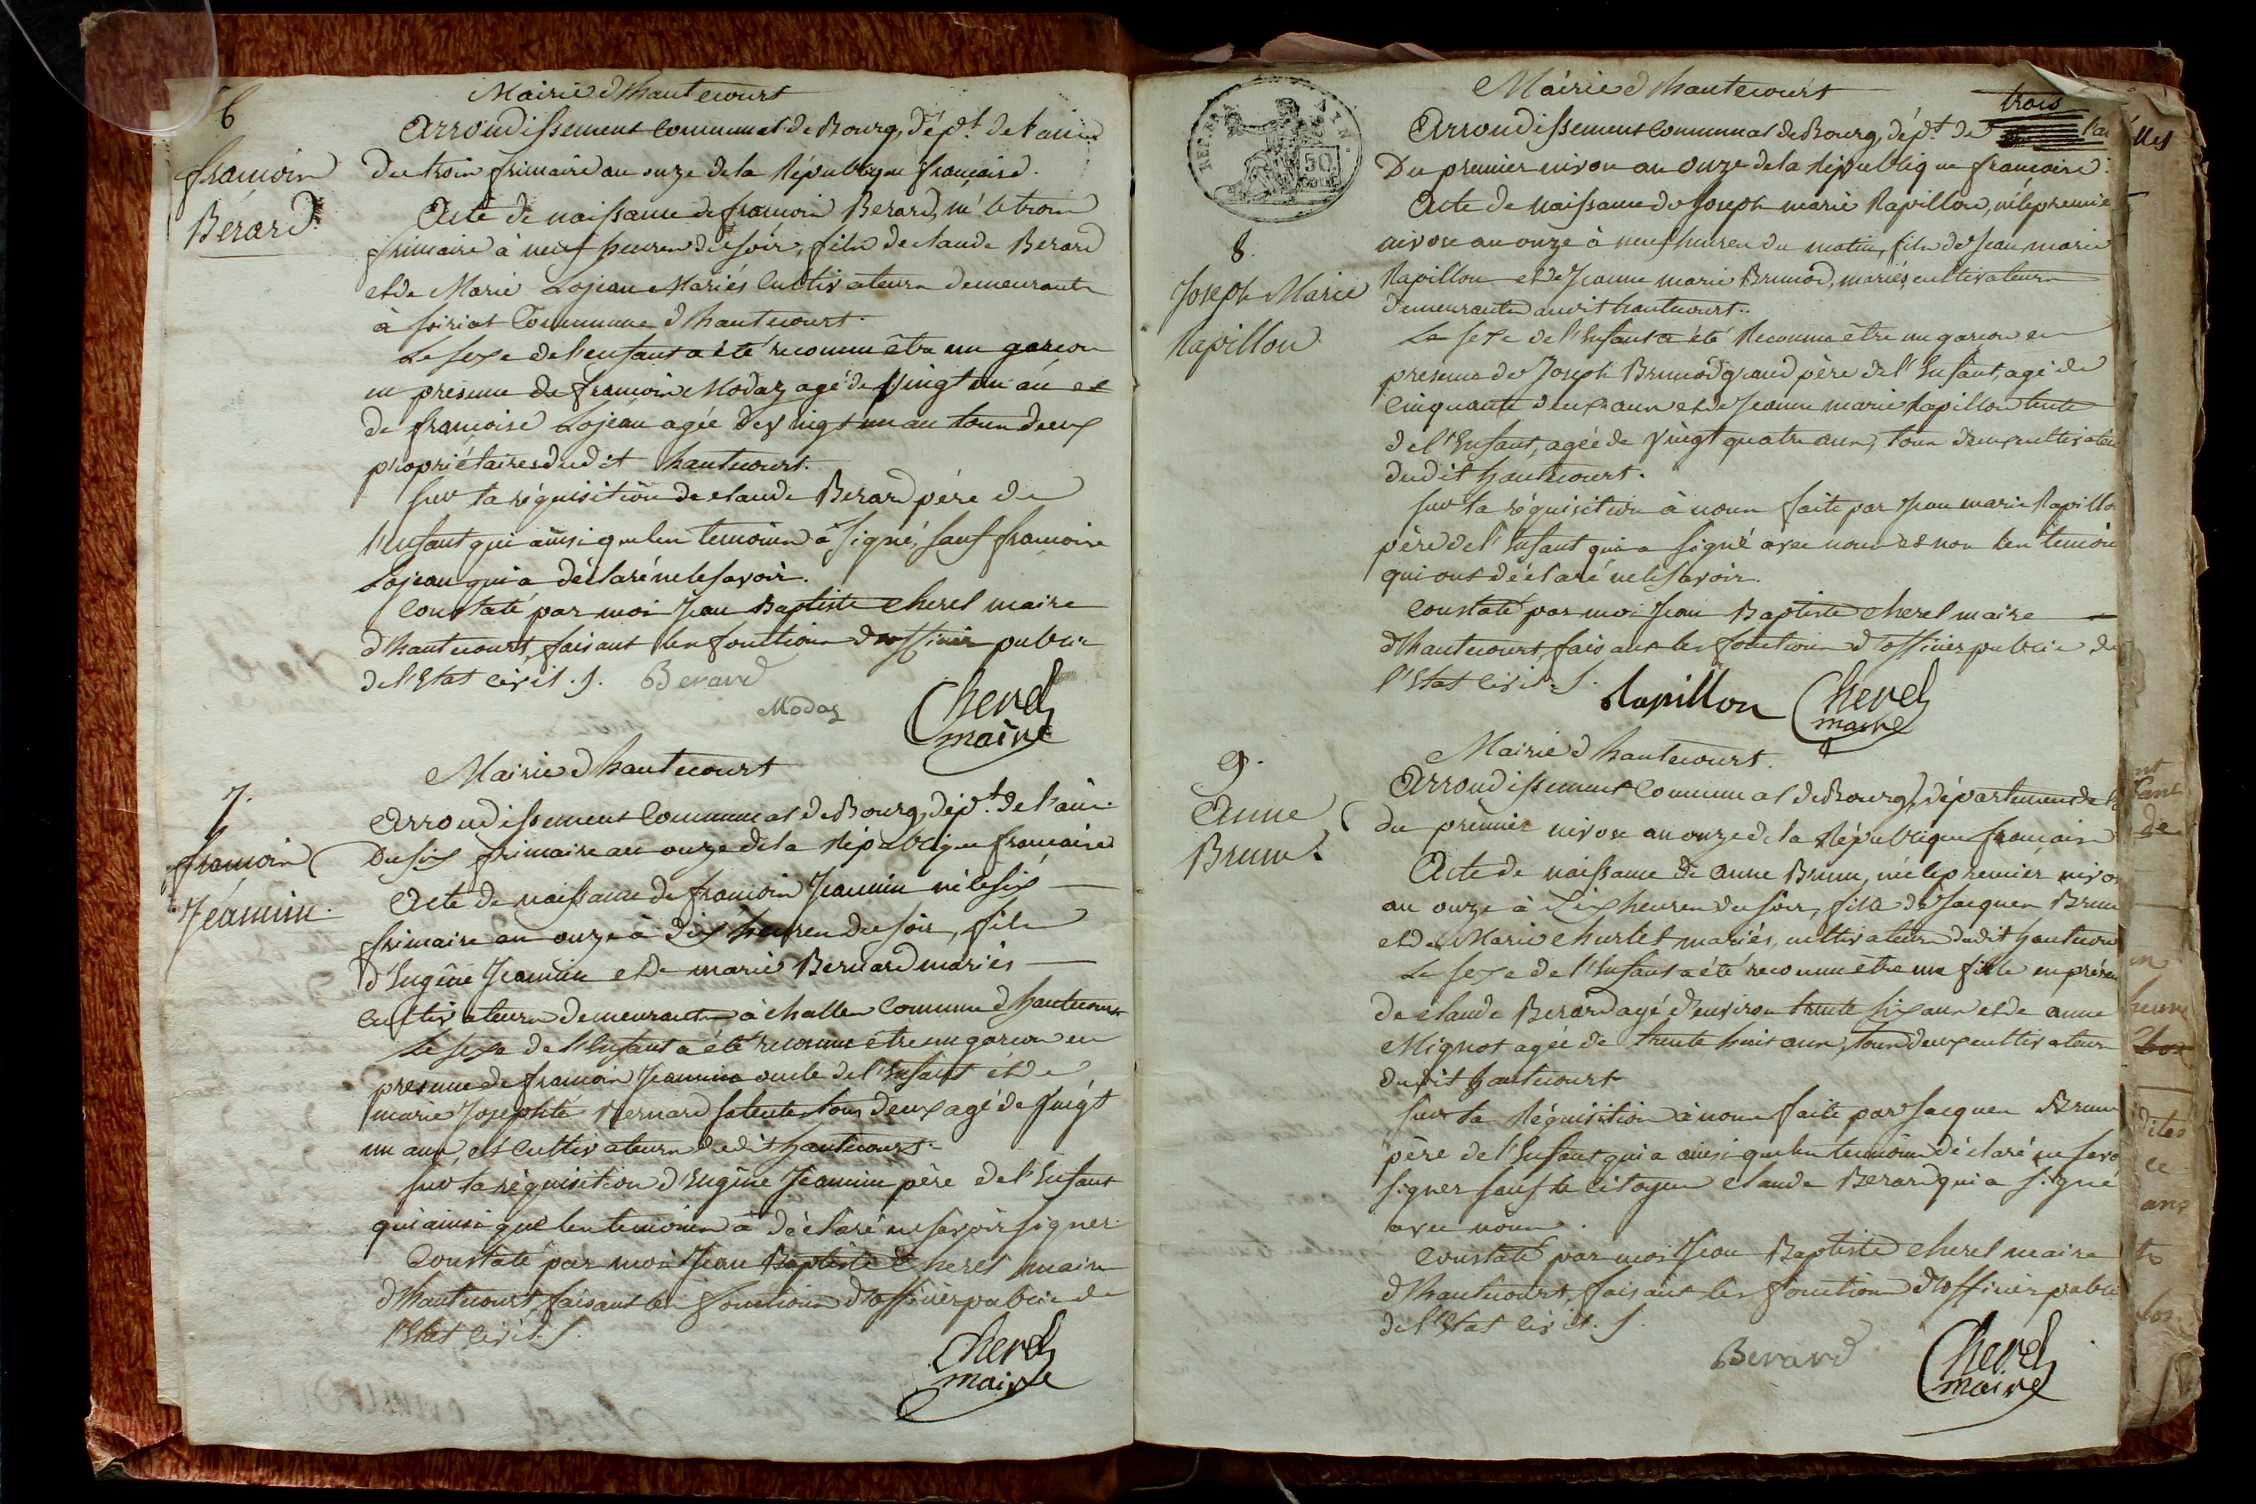 6
françois
Bérard.
Mairie d'hautecourt
Arrondissement Communal de Bourg, dép.t de l'ain
du trois frimaire an onze de la République française.
Acte de naissance de françois Berard, né le trois
frimaire à neuf heures du soir, fils de claude Berard
et de Marie Lojeau Mariés Cultivateurs demeurants
à soiriat Commune d'hautecourt.
Le sexe de l'enfant a été reconnu être un garcon
en presence de françois Modaz agé de vingt un an et
de françoise Lojeau agée de vingt un an tous deux
propriétaires dudit hautecourt.
Sur la réquisition de claude Berard père de
l'enfant qui ainsi que les temoins a signé, sauf françoise
Lojeau qui a déclaré ne le savoir.
Constaté par moi Jean Baptiste cherel maire
d'hautecourt, faisant les fonctions d'officier public
de l'Etat Civil. /.
Berard
Modaz
Cherel
maire
7.
françois
Jéannin.
Mairie d'hautecourt
Arrondissement Communal de Bourg, dép.t de l'ain.
Du six frimaire an onze de la République française
Acte de naissance de françois Jeannin né le six
frimaire an onze à dix heures du soir, fils
d'Eugène Jeannin et de marie Bernard mariés
Cultivateurs demeurants à challes Commune d'hautecourt
Le sexe de l'Enfant a été reconnu être un garcon en
presence de françois Jeannin oncle de l'Enfant et de
marie Josephte Bernard sa tente tous deux agé de vingt
un ans, et Cultivateurs dudit hautecourt.
Sur la réquisition d'Eugène Jeannin père de l'Enfant
qui ainsi que les temoins a déclaré ne savoir signer.
Constaté par moi Jean Baptiste Cherel maire
d'hautecourt, faisant les fonctions d'officier public de
l'Etat Civil. /.
Cherel
maire
trois
8.
Joseph Marie
Rapillon.
Mairie d'hautecourt
Arrondissement Communal de Bourg, dép.t de
Du premier nivose an onze de la République française.
Acte de naissance de Joseph marie Rapillon, né le premier
nivose an onze à neuf heures du matin, fils de Jean marie
Rapillon et de Jeanne marie Brunod, mariés, cultivateurs
demeurants audit hautecourt.
Le sexe de l'Enfant a été Reconnu être un garcon en
presence de Joseph Brunod grand père de l'Enfant, agé de
Cinquante deux ans et de Jeanne marie Rapillon tente
de l'Enfant, agée de vingt quatre ans, tous deux cultivateu
dudit hautecourt.
Sur la réquisition à nous faite par Jean marie Rapillo
père de l'Enfant qui a signé avec nous et non les temoin
qui ont déclaré ne le savoir.
Constaté par moi Jean Baptiste cherel maire
d'hautecourt, faisant les fonctions d'officier public de
l'Etat Civil. /.
Rapillon
Cherel
maire
9.
Anne
Brun.
Mairie d'hautecourt.
Arrondissement Communal de Bourg, département de
du prémier nivose an onze de la République française
Acte de naissance de anne Brun, née le premier nivo
an onze à six heures du soir, fille de Jacques Brun
et de Marie churlet mariés, cultivateurs dudit hautecou
Le sexe de l'Enfant a été reconnu être une fille en présen
de claude Berard agé d'environ trente six ans et de anne
Mignot agée de trente huit ans, tous deux cultivateurs
dudit hautecourt
Sur la Réquisition à nous faite par Jacques Brun
père de l'Enfant qui a ainsi que les temoins déclaré ne savo
signer sauf le citoyen claude Berard qui a signé
avec nous.
Constaté par moi Jean Baptiste cherel maire
d'hautecourt, faisant les fonctions d'officier public
de l'Etat Civil. /.
Berard
Cherel
maire